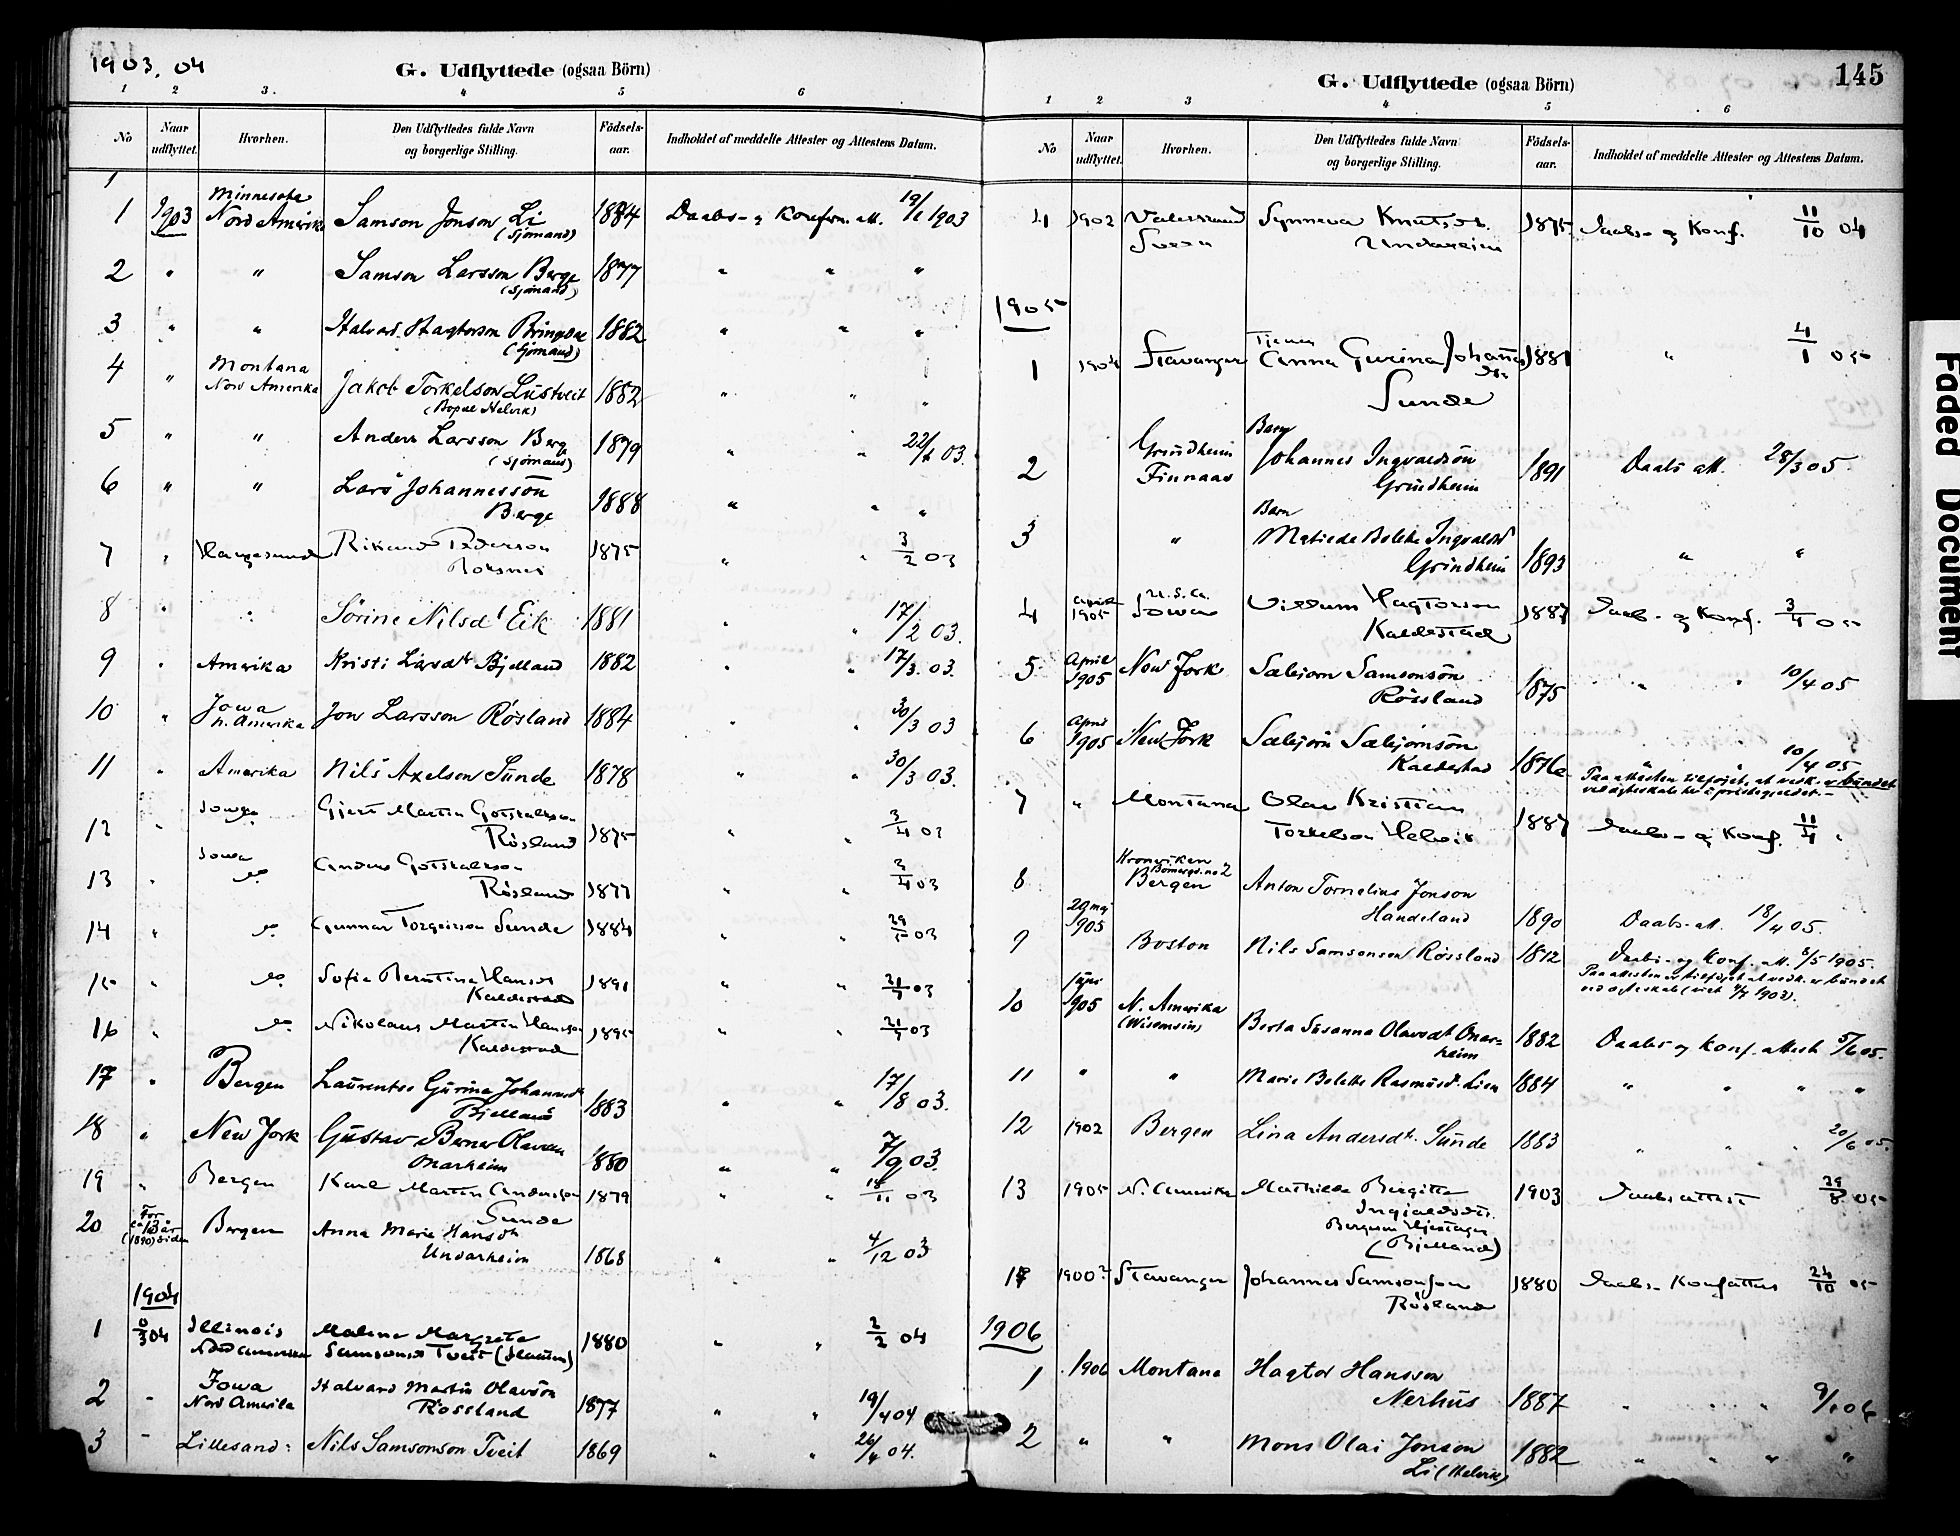 1903. 04
G. Udflyttede (ogsaa Börn)
1 2 3. 4 5 6
No
Naar udflyttet.
Hvorhen.
Den Udflyttedes fulde Navn og borgerlige Stilling.
Födsels-aar.
Indholdet af meddelte Attester og Attestens Datum.
1 1903 Minnesota Nord Amerika Samson Jonson Li (Sjømand) 1884 Daabs- og Konfirm. att. 19/1 1903
2 " " Samson Larsson Berge (Sjømand) 1877 " " "
3 " " Halvard Hagtorson Bringedal (Sjømand) 1882 " " "
4 " Montana Nord Amerika Jakob Torkelson Lustveit 1882 " " "
5 " " Anders Larsson Berge (Sjømand) 1879 " " 22/1 03.
6 " " Lars Johannesson Berge 1888 " " "
7 " Haugesund Rikard Pederson 1875 " " 3/2 03
8 " " Sörine Nilsdt Eik 1881 " " 17/2 03.
9 " Amerika Kristi Larsdtr Bjelland 1882 " " 17/3. 03.
10 " Jowa N. Amerika Jon Larsson Røsland 1884 " " 30/3 03
11 " Amerika Nils Axelson Sunde 1878 " " 30/3 03.
12 " Gjert Martin Gotskalkson Røsland 1875 " " 3/4 03
13 " Iowa Anders Gotskalkson Røsland 1877 " " 3/4 03
14 " Gunnar Torgeirson Sunde 1884 " " 03
15 " Sofie Berntine Hansdt Kaldestad 1891 " " 03
16 " Nikolaus Martin Hansson Kaldestad 1895 " " 03
17 " Bergen Laurentse Gurine Johannesdt Bjelland 1883 " " 17/8 03.
18 " New York Gustav Berner Olavson Onarheim 1880 " " 7/9 03.
19 " Bergen Karl Martin Anderson Sunde 1879 " " 18/11 03
20 For ca 13 år (1890) siden Bergen Anna Marie Hansdtr Undarheim 1868 " " 4/12 03
1904
1 04 Illinois Nord Amerika Malene Margrete Samsonsdt Tveit 1880 " " 2/2 04
2 " Iowa Nord Amerika Halvard Martin Olavson Røssland 1877 " " 19/4 04
3 " Lillesand Nils Samsonson Tveit 1869 " " 26/4 04.
145
G. Udflyttede (ogsaa Börn)
1 2 3 4 5 6
No
Naar udflyttet.
Hvorhen.
Den Udflyttedes fulde Navn og borgerlige Stilling.
Födsels-aar.
Indholdet af meddelte Attester og Attestens Datum.
4 1902 Synneva Knutsdt. Undarheim 1875 Daabs- og Konf. 11/10 04
1905
1 1904 Stavanger Tjener Anna Gurina Johannesdtr Sunde 1881 " 4/1 05
2 Grindheim Finnaas Barn Johannes Ingvaldson Grindheim 1891 Daabs att. 28/3 05.
3 " Barn Matilde Bolette Ingvaldsd Grindheim 1893 " "
4 April 1905 U.S.A. Iowa Villum Hagtorson Kaldestad 1887 Daab- og Konf. 3/4 05
5 April 1905 New York Sæbjørn Samsonson Røssland 1875 " " 10/4 05
6 April 1905 New York Sæbjørn Sæbjørnson Kaldestad 1876 " " 10/4 05
Paa attesten tilføjet, at vedk. er bundet ved ægteskabs løfte i præstegjeldet.-
7 " Montana Olav Kristian Torkelson Helvik 1887 Daabs- og Konf. 11/4 "
8 Kroneviken Bergen Anton Tornelius Jonson Handeland 1890 Daabs-att. 18/4 05.
9 20 maj 1905 Boston Nils Samsonsen Røssland 1872 Daabs- og Konf. att. /5 1905.
Paa attesten er tilføjet at vedk. er bundet ved ægteskab (viet 1903).
10 juni 1905 N. Amerika (Wisconsin) Berta Susanna Olavsdt Onarheim 1882 Daabs og Konf. attest 5/6 05.
11 " " Marie Bolette Rasmusdt. Lien 1884 " " " "
12 1902 Bergen Lina Andersdtr. Sunde 1883 " " " 20/6 05.
13 1905 N. Amerika Mathilde Birgitte Ingjaldsdtr. (Bjelland) 1903 Daabsattest 29/8 05
14 1900? Stavanger Johannes Samsonson Røsland 1880 Daabs- Konfattest 24/10 05
1906
1 1906 Montana Hagtor Hansson Nerhus 1887 " " " 9/1 06
2 " " Mons Olai Jonson Li (Helvik) 1882 " " " "
Faded Document